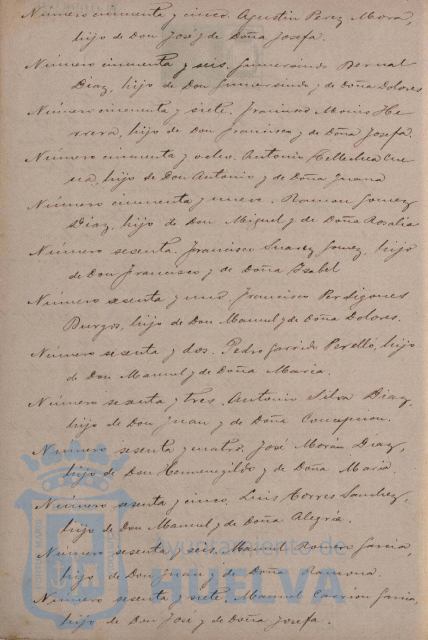 Número cincuenta y cinco. Agustín Perez Mora,
hijo de Don José y de Doña Josefa.
Número cincuenta y seis. Gumersindo Bernal
Diaz, hijo de Don Gumersindo y de Doña Dolores
Número cincuenta y siete. Francisco He-
rrera, hijo de Don Francisco y de Doña Josefa.
Número cincuenta y ocho. Antonio Tellechea Cue-
, hijo de Don Antonio y de Doña Juana
Número cincuenta y nueve. Ramon Gomez
Diaz, hijo de Don Miguel y de Doña Rosalia
Número sesenta. Francisco Suarez Gomez, hijo
de Don Francisco y de Doña Isabel
Número sesenta y uno. Francisco Perdigones
Burgos, hijo de Don Manuel y de Doña Dolores.
Número sesenta y dos. Pedro Garrido Perello, hijo
de Don Manuel y de Doña Maria.
Número sesenta y tres. Antonio Silva Diaz,
hijo de Don Juan y de Doña Concepcion.
Número sesenta y cuatro. José Morán Diaz,
hijo de Don Hermenegildo y de Doña Maria.
Número sesenta y cinco. Luis Torres Sanchez,
hijo de Don Manuel y de Doña Alegria.
Número sesenta y seis. Manuel Garcia,
hijo de Don Juan y de Doña Ramona.
Número sesenta y siete. Manuel Carrion Garcia,
hijo de Don José y de Doña Josefa.
Ayuntamiento de
HUELVA